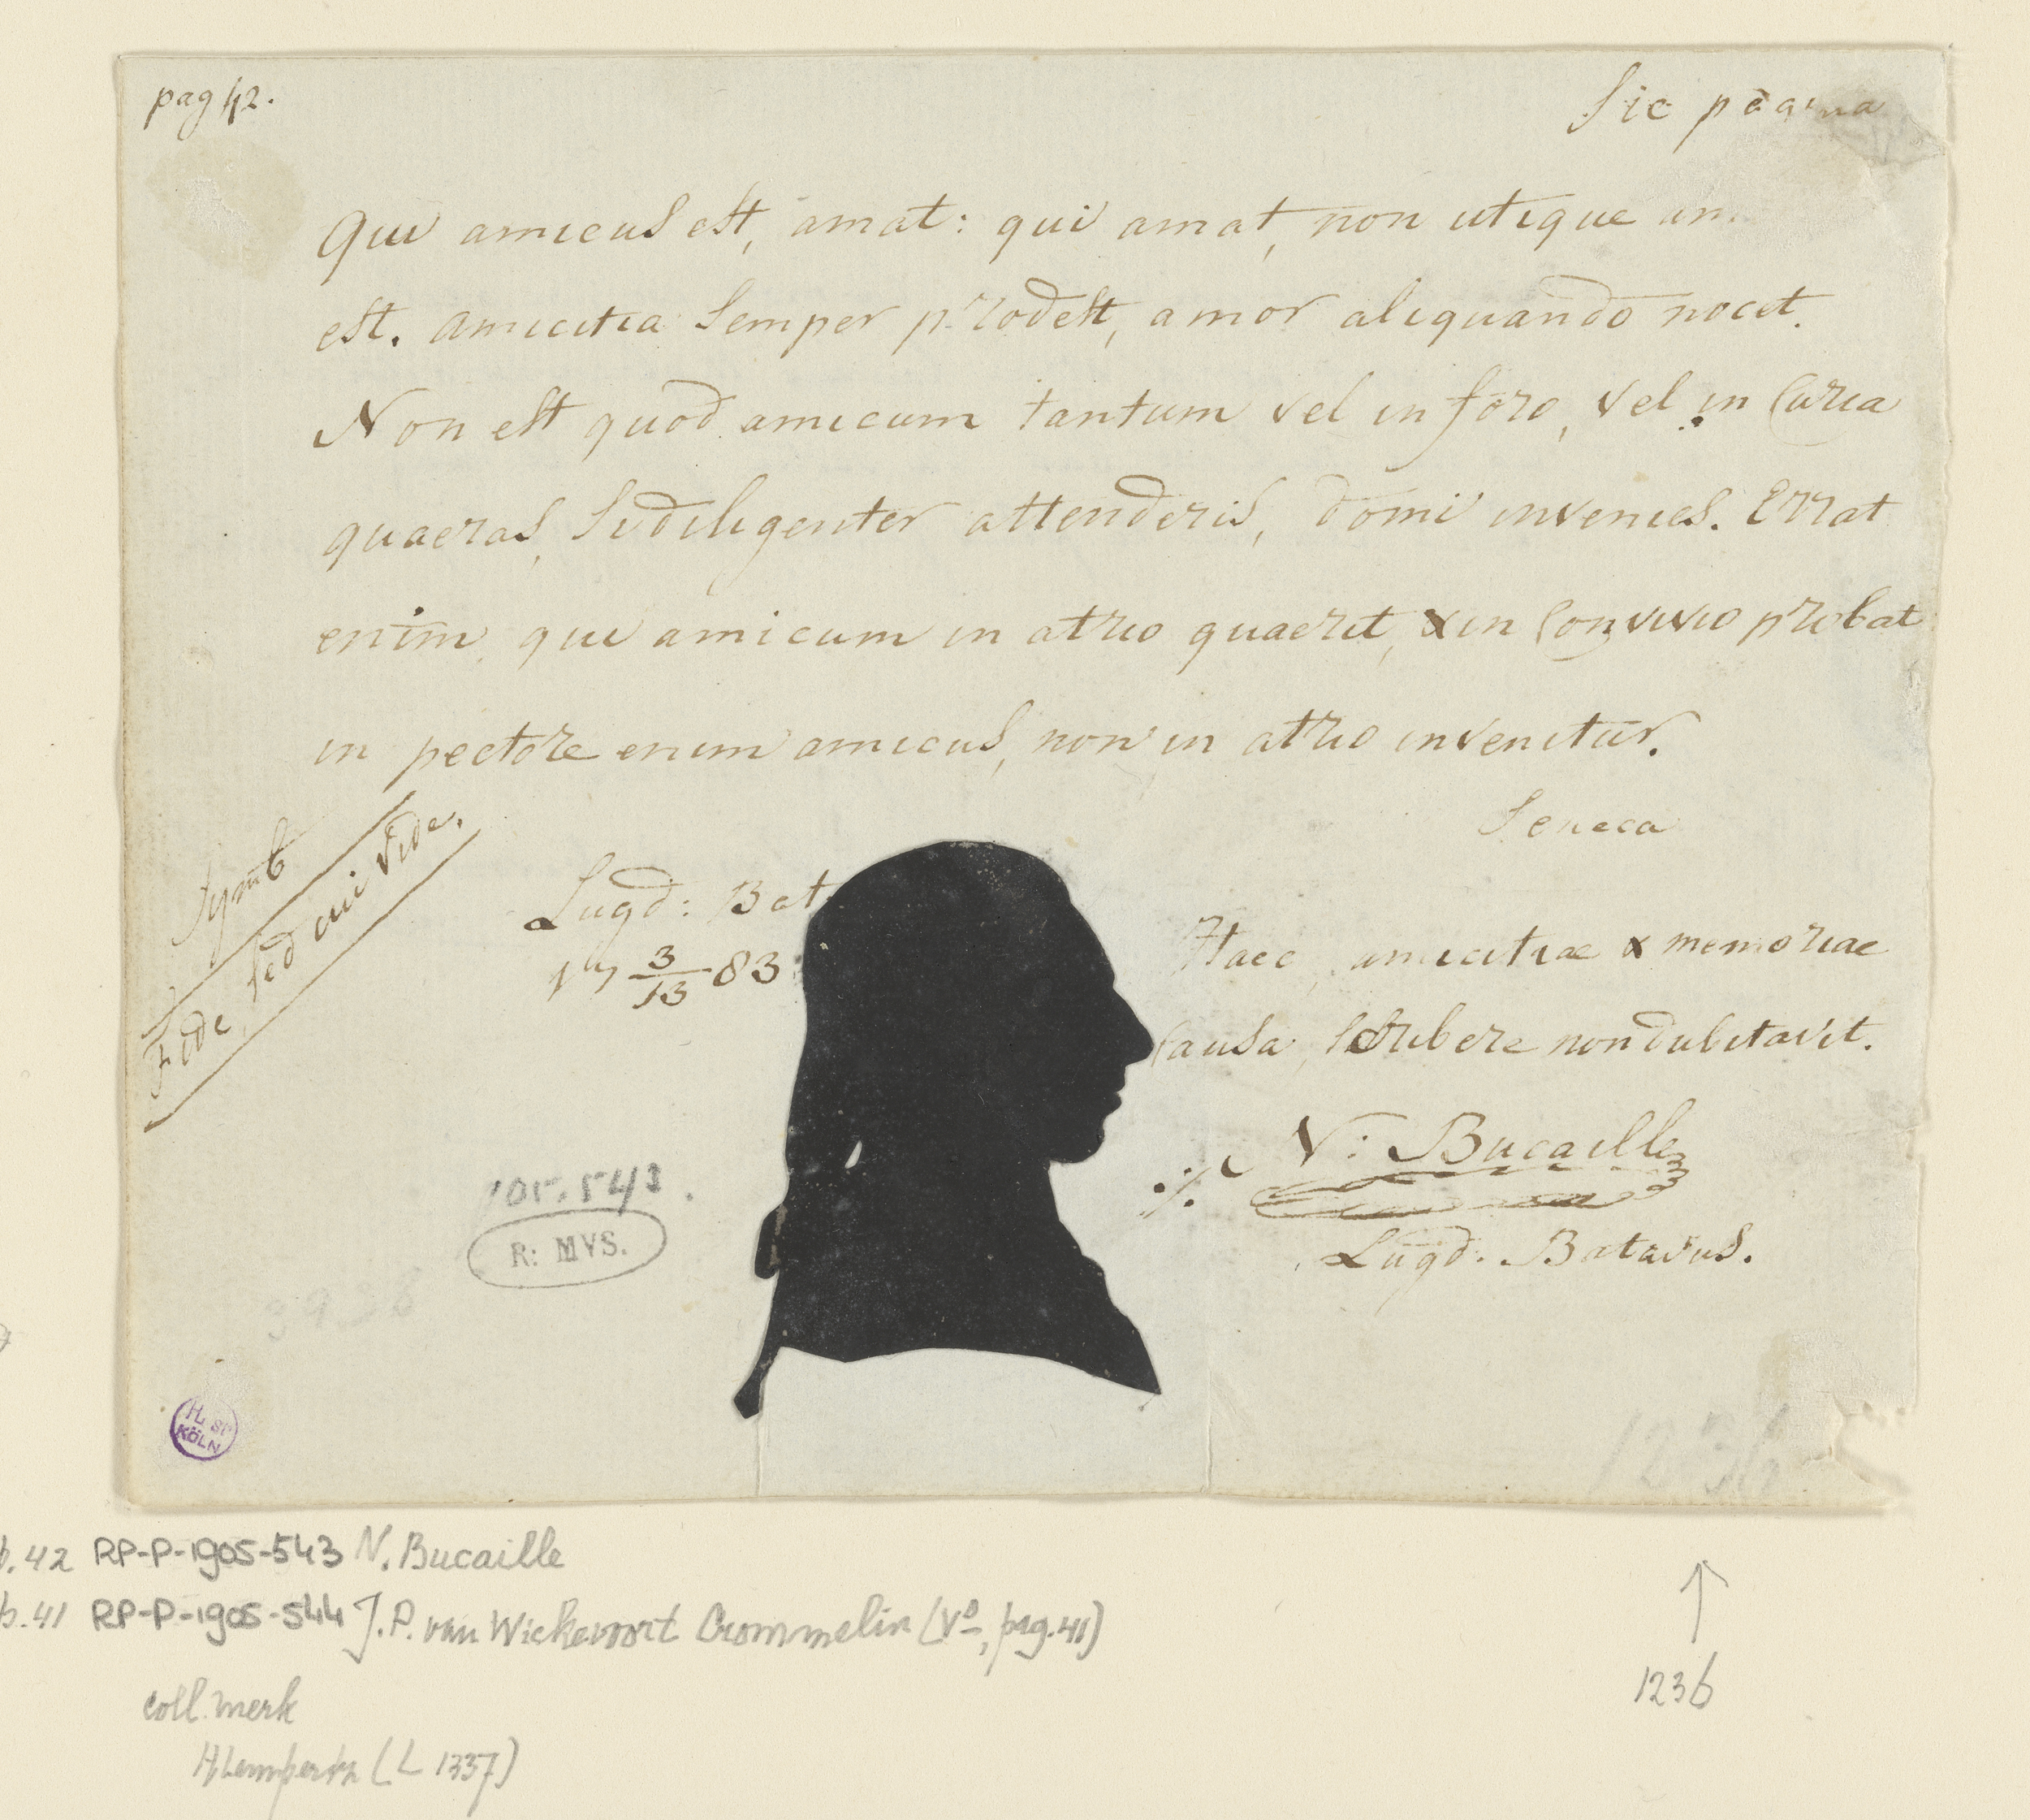 pag 42.
Sic pagina
Qui amicus est, amat: qui amat, non utique am
est. amicitia Semper prodest, amor aliquando nocet.
Non est quod amicum tantum vel in foro, vel in Curia
quaeras, Si diligenter attenderis, domi invenies. Errat
enim, qui amicum in atrio quaerit, & in Convivio probat
in pectore enim amicus, non in atrio invenitur.
Seneca
Symb
Fide, sed cui vide.
Lugd: Bat
17 3/13 83
Haec, amicitiae & memoriae
Causa, Scribere non dubitavit.
N: Bucaille
Lugd. Batavus.
'05.543.
R: MVS.
3926
KÖLN
1236
b. 42 RP-P-1905-543 N. Bucaille
b. 41 RP-P-1905-544 J. P. van Wickevoort Crommelin (Vo, pag. 41)
1236
coll. merk
H Lempertz (L 1337)